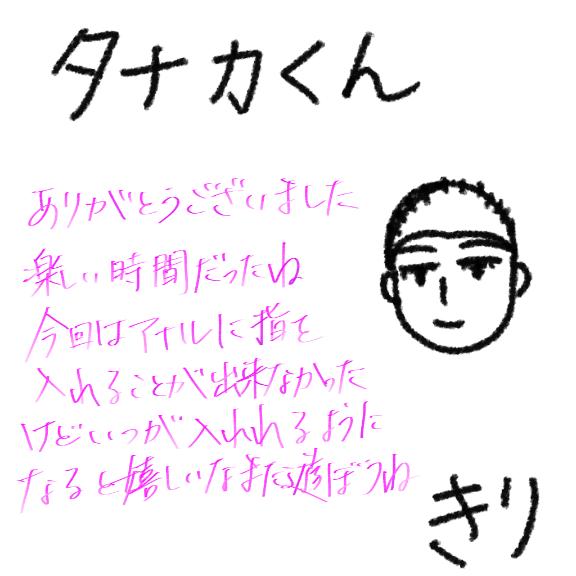 タナカくん
ありがとうございました
楽しい時間だったね
今回はアナルに指を
入れることが出来なかった
けどいつか入れれるように
なると嬉しいなまた遊ぼうね
きり